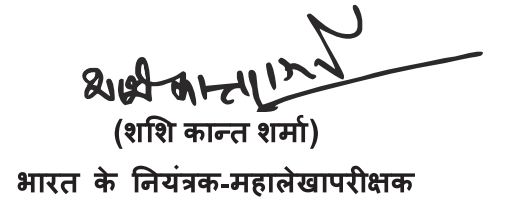 शशि कान्त शर्मा
(शशि कान्त शर्मा)
भारत के नियंत्रक-महालेखापरीक्षक